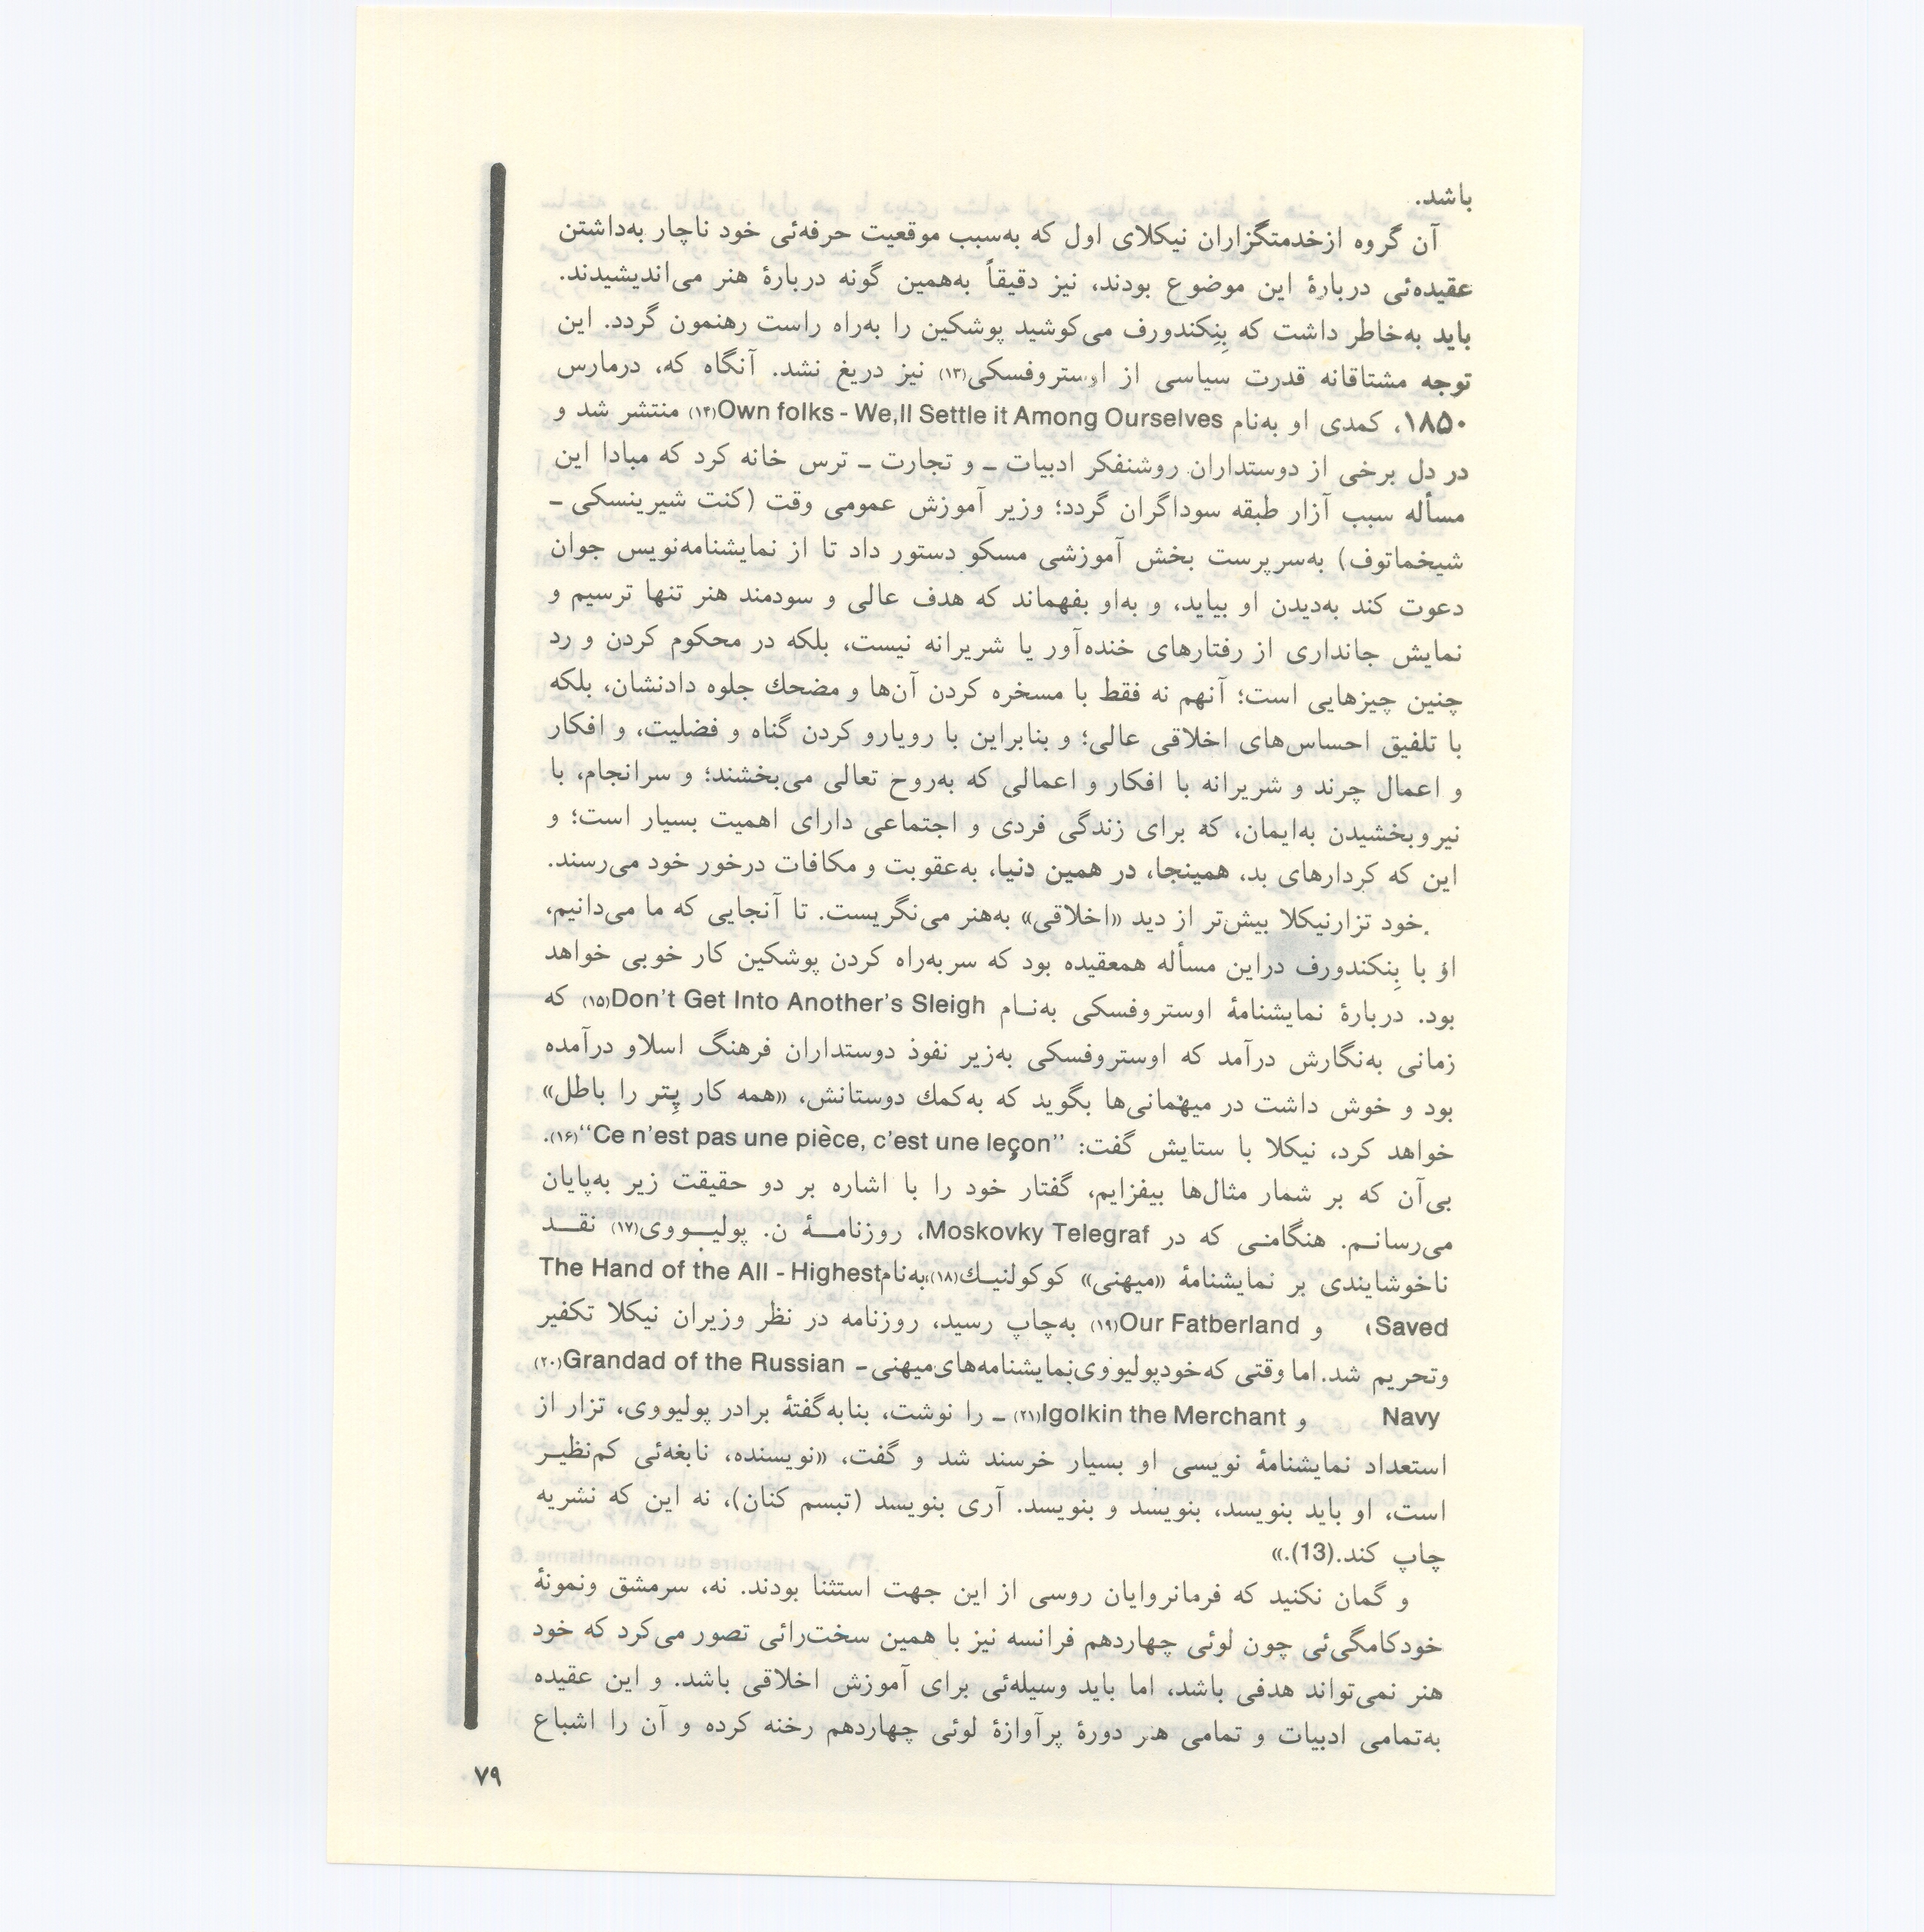 باشد.
آن گروه ازخدمتگزاران نیکلای اول که به‌سبب موقعیت حرفه‌ئی خود ناچار به‌داشتن
عقیده‌ئی دربارهٔ این موضوع بودند، نیز دقیقاً به‌همین گونه دربارهٔ هنر می‌اندیشیدند.
باید به‌خاطر داشت که بِنِکندورف می‌کوشید پوشکین را به‌راه راست رهنمون گردد. این
توجه مشتاقانه قدرت سیاسی از اوستروفسکی(۱۳) نیز دریغ نشد. آنگاه که، درمارس
۱۸۵۰، کمدی او به‌نام Own folks - We,ll Settle it Among Ourselves(۱۴) منتشر شد و
در دل برخی از دوستداران روشنفکر ادبیات ـ و تجارت ـ ترس خانه کرد که مبادا این
مسأله سبب آزار طبقه سوداگران گردد؛ وزیر آموزش عمومی وقت (کنت شیرینسکی ـ
شیخماتوف) به‌سرپرست بخش آموزشی مسکو دستور داد تا از نمایشنامه‌نویس جوان
دعوت کند به‌دیدن او بیاید، و به‌او بفهماند که هدف عالی و سودمند هنر تنها ترسیم و
نمایش جانداری از رفتارهای خنده‌آور یا شریرانه نیست، بلکه در محکوم کردن و رد
چنین چیزهایی است؛ آنهم نه فقط با مسخره کردن آن‌ها و مضحك جلوه دادنشان، بلکه
با تلفیق احساس‌های اخلاقی عالی؛ و بنابراین با رویارو کردن گناه و فضلیت، و افکار
و اعمال چرند و شریرانه با افکار و اعمالی که به‌روح تعالی می‌بخشند؛ و سرانجام، با
نیروبخشیدن به‌ایمان، که برای زندگی فردی و اجتماعی دارای اهمیت بسیار است؛ و
این که کردارهای بد، همینجا، در همین دنیا، به‌عقوبت و مکافات درخور خود می‌رسند.
خود تزارنیکلا بیش‌تر از دید «اخلاقی» به‌هنر می‌نگریست. تا آنجایی که ما می‌دانیم،
او با بِنکندورف دراین مسأله همعقیده بود که سربه‌راه کردن پوشکین کار خوبی خواهد
بود. دربارهٔ نمایشنامهٔ اوستروفسکی به‌نـام Don’t Get Into Another’s Sleigh(۱۵) که
زمانی به‌نگارش درآمد که اوستروفسکی به‌زیر نفوذ دوستداران فرهنگ اسلاو درآمده
بود و خوش داشت در میهمانی‌ها بگوید که به‌کمك دوستانش، «همه کار پِتر را باطل»
خواهد کرد، نیکلا با ستایش گفت: “Ce n’est pas une pièce, c’est une leçon”(۱۶).
بی‌آن که بر شمار مثال‌ها بیفزایم، گفتار خود را با اشاره بر دو حقیقت زیر به‌پایان
می‌رسانـم. هنگامنـی که در Moskovky Telegraf، روزنامـهٔ ن. پولیـووی(۱۷) نقـد
ناخوشایندی بر نمایشنامهٔ «میهنی» کوکولنیـك(۱۸)،به‌نامThe Hand of the All - Highest
Saved، و Our Fatberland(۱۹) به‌چاپ رسید، روزنامه در نظر وزیران نیکلا تکفیر
وتحریم شد. اما وقتی که‌خودپولیووی‌نمایشنامه‌های‌میهنی ـ Grandad of the Russian(۲۰)
Navy و Igolkin the Merchant(۲۱) ـ را نوشت، بنابه‌گفتهٔ برادر پولیووی، تزار از
استعداد نمایشنامهٔ نویسی او بسیار خرسند شد و گفت، «نویسنده، نابغه‌ئی کم‌نظیـر
است، او باید بنویسد، بنویسد و بنویسد. آری بنویسد (تبسم کنان)، نه این که نشریه
چاپ کند.(13).»
و گمان نکنید که فرمانروایان روسی از این جهت استثنا بودند. نه، سرمشق ونمونهٔ
خودکامگی‌ئی چون لوئی چهاردهم فرانسه نیز با همین سخت‌رائی تصور می‌کرد که خود
هنر نمی‌تواند هدفی باشد، اما باید وسیله‌ئی برای آموزش اخلاقی باشد. و این عقیده
به‌تمامی ادبیات و تمامی هنر دورهٔ پرآوازهٔ لوئی چهاردهم رخنه کرده و آن را اشباع
۷۹